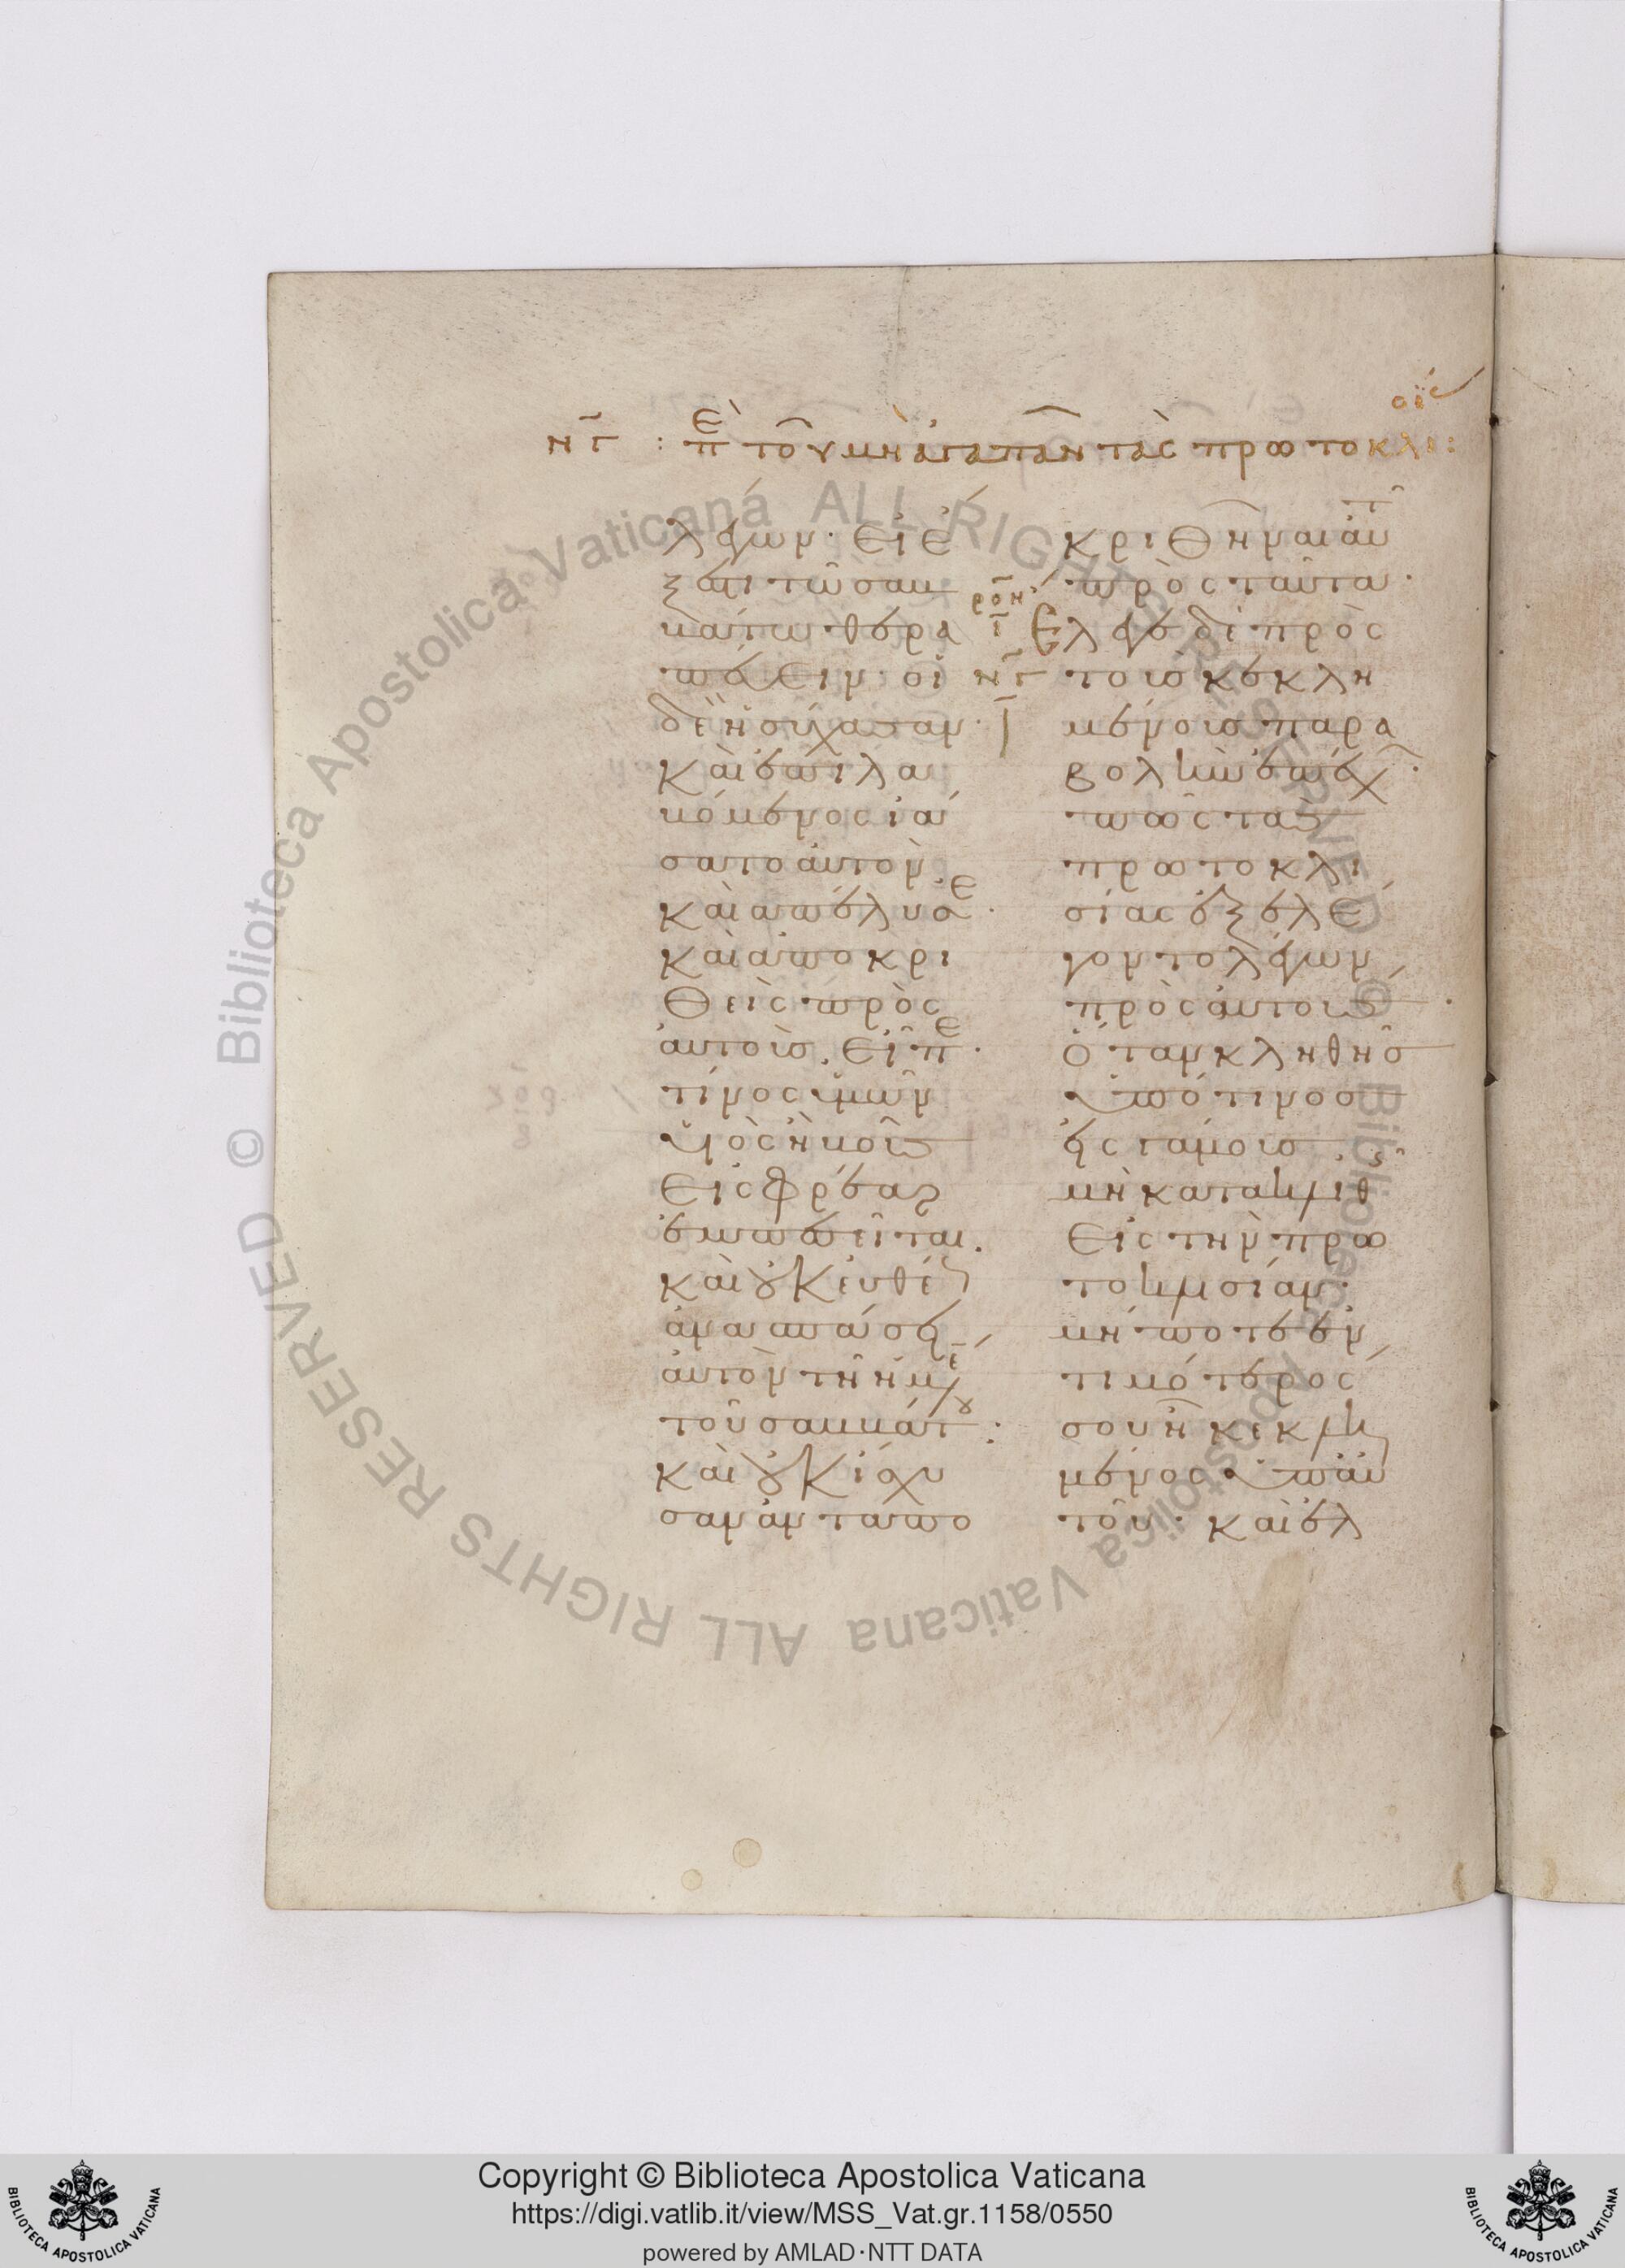 νγ : πὲ τοῦ μὴ ἀγαπᾶν τὰς πρωτοκλισίας :
λέγων· εἰ ἔ
ξεστι τῶ σαβ
βάτω θερα
πεύειν· οἱ
δὲ ἡσύχασαν·
καὶ ἐπιλα
βόμενος ἰά
σατο αὐτὸν
καὶ ἀπέλυσε·
καὶ ἀποκρι
θεὶς πρὸς
αὐτοὺς εἶπε·
τίνος ὑμῶν
υἱὸς ἢ βοῦς
εἰς φρέαρ
ἐμπεσεῖται.
καὶ οὐκ εὐθέως
ἀνασπάσει
αὐτὸν τῆ ἡμέρα
τοῦ σαββάτου:
καὶ οὐκ ἴσχυ
σαν ἀνταπο
κριθῆναι αὐτῶ
πρὸς ταῦτα·
ροη
ι
νγ
ἔλεγε δὲ πρὸς
τοὺς κεκλη
μένους παρα
βολὴν ἐπέχων·
πῶς τὰς
πρωτοκλι
σίας ἐξελέ
γοντο λέγων
πρὸς αὐτούς·
ὅταν κληθῆς
ὑπό τινος
εἰς γάμους
μὴ κατακλιθῆς
εἰς τὴν πρω
τοκλισίαν·
μήποτε ἐν
τιμότερός
σου ἦ κεκλη
μένος ὑπ αὐ
τοῦ· καὶ ἐλ
© Biblioteca Apostolica Vaticana ALL RIGHTS RESERVED
© Biblioteca Apostolica Vaticana ALL RIGHTS RESERVED
Copyright © Biblioteca Apostolica Vaticana
https://digi.vatlib.it/view/MSS_Vat.gr.1158/0550
powered by AMLAD·NTT DATA
BIBLIOTECA APOSTOLICA VATICANA
BIBLIOTECA APOSTOLICA VATICANA